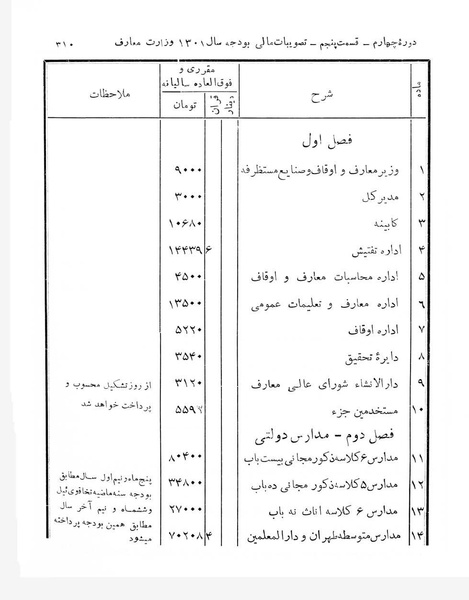 دوره چهارم - قسمت پنجم - تصویبات مالی بودجه سال ۱۳۰۱ وزارت معارف ۳۱۰
ماده شرح مقرری و فوق‌العاده - سالیانه ملاحظات
قران دینار تومان
فصل اول
۱ وزیر معارف و اوقاف و صنایع مستظرفه ۹۰۰۰
۲ مدیر کل ۳۰۰۰
۳ کابینه ۱۰۶۸۰
۴ اداره تفتیش ۶ ۱۴۴۳۹
۵ اداره محاسبات معارف و اوقاف ۴۵۰۰
۶ اداره معارف و تعلیمات عمومی ۱۳۵۰۰
۷ اداره اوقاف ۵۲۲۰
۸ دایرهٔ تحقیق ۳۵۴۰
۹ دارالانشاء شورای عالی معارف ۳۱۲۰ از روز تشکیل محسوب و
پرداخت خواهد شد
۱۰ مستخدمین جزء
فصل دوم - مدارس دولتی
۱۱ مدارس ۶ کلاسه ذکور مجانی بیست باب ۸۰۴۰۰
۱۲ مدارس ۵ کلاسه ذکور مجانی ده باب ۳۴۸۰۰ پنجماه و نیم اول سال مطابق
بودجه سنه ماضیه تخاقوی ئیل
۱۳ مدارس ۶ کلاسه اناث نه باب ۲۷۰۰۰ و ششماه و نیم آخر سال
مطابق همین بودجه پرداخته
۱۴ مدارس متوسطه طهران و دارالمعلمین ۴ ۷۰۲۰۸ میشود